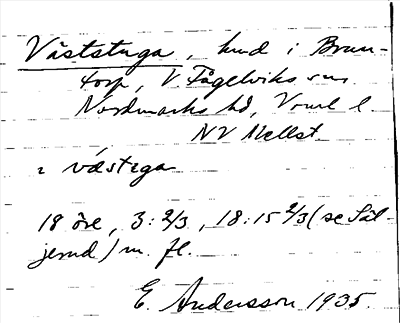 Väststuga, hmd i Brun-
torp, V. Fågelviks sn.
Nordmarks hd, Vrml l.
NV Mellst.
i västsga
18 öre, 3: 2/3, 18:15 2/3 (se Säl-
jerud) m. fl.
E. Andersson 1935.